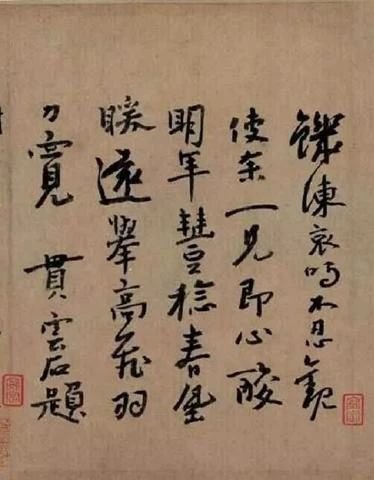 饑凍哀鳴不忍觀
使余一見即心酸
明年豐稔春塘
暖遠舉高飛羽
力寬 貫雲石題